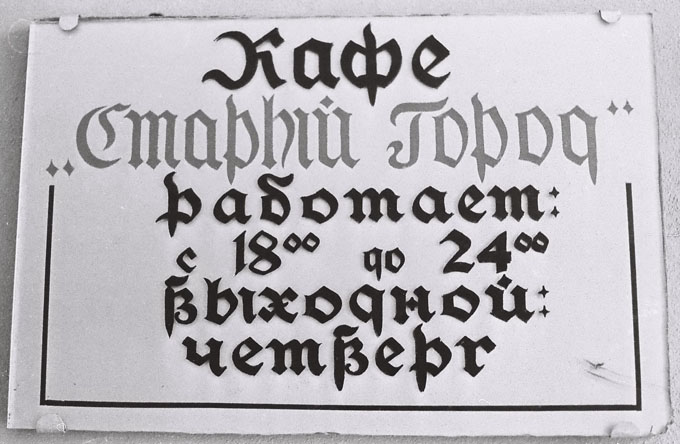 Кафе
„Старый Город“
работает:
с 18⁰⁰ до 24⁰⁰
выходной:
четверг